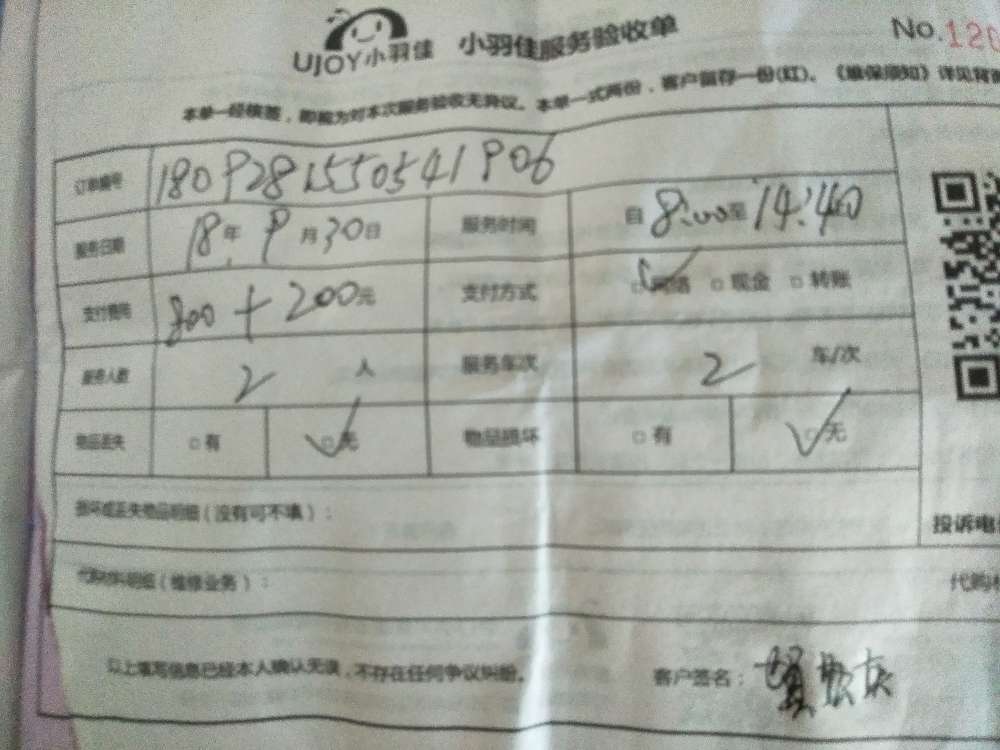 UJOY小羽佳 小羽佳服务验收单 No.120
本单一经核签，即视为对本次服务验收无异议。本单一式两份，客户留存一份(红)。《维保须知》详见背
订单编号 180928155505541906
服务日期 18年 9月30日 服务时间 自8:00至14:40
支付费用 800+200元 支付方式 □网络 □现金 □转账
服务人数 2人 服务车次 2 车/次
物品丢失 □有 □无 物品损坏 □有 □无
损坏或丢失物品明细(没有可不填)：
投诉电
代购材料明细(维修业务)：
代购
以上填写信息已经本人确认无误，不存在任何争议纠纷。 客户签名：